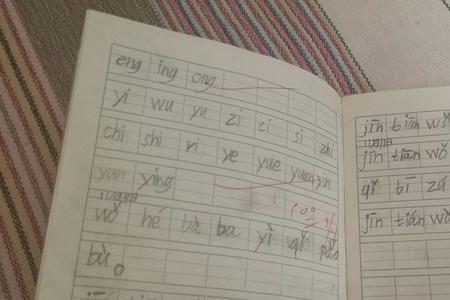 eng ing ong
yi wu yu zi ci si zhi
chi shi ri ye yue yuan yin
yun ying
wǒ hé bà ba yì qǐ pǎo
bù。
jīn tiān wǒ
jīn tiān wǒ
qǐ tī zú
jīn tián wǒ